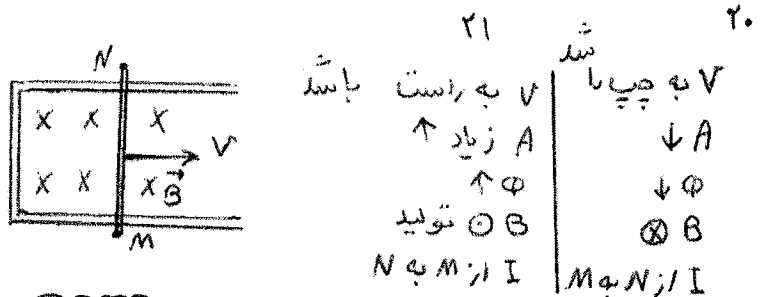 ۲۰
V به چپ باشد
A ↓
Φ ↓
B ⊗
I از N به M
۲۱
V به راست باشد
A زیاد ↑
Φ ↑
B ⊙ تولید
I از M به N
N
x x x
V
x x x B⃗
M